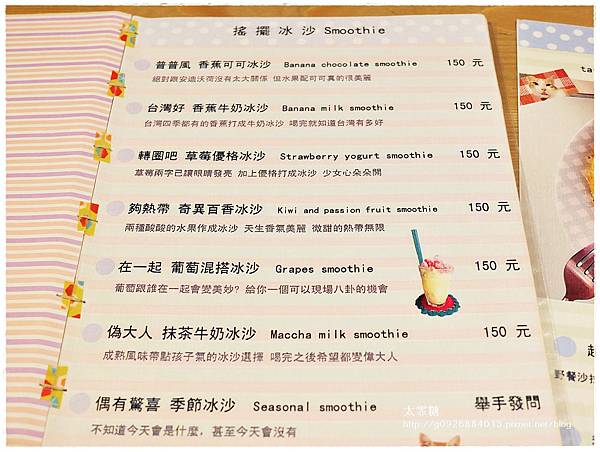 搖擺冰沙 Smoothie
普普風 香蕉可可冰沙 Banana chocolate smoothie 150 元
絕對跟安迪沃荷沒有太大關係 但水果配可可真的很美麗
台灣好 香蕉牛奶冰沙 Banana milk smoothie 150 元
台灣四季都有的香蕉打成牛奶冰沙 喝完就知道台灣有多好
轉圈吧 草莓優格冰沙 Strawberry yogurt smoothie 150 元
草莓兩字已讓眼睛發亮 加上優格打成冰沙 少女心朵朵開
夠熱帶 奇異百香冰沙 Kiwi and passion fruit smoothie 150 元
兩種酸酸的水果作成冰沙 天生香氣美麗 微甜的熱帶無限
在一起 葡萄混搭冰沙 Grapes smoothie 150 元
葡萄跟誰在一起會變美妙? 給你一個可以現場八卦的機會
偽大人 抹茶牛奶冰沙 Maccha milk smoothie 150 元
成熟風味帶點孩子氣的冰沙選擇 喝完之後希望都變偉大人
偶有驚喜 季節冰沙 Seasonal smoothie 舉手發問
不知道今天會是什麼，甚至今天會沒有
ta
野餐沙拉
http://g0926884013.pixnet.net/blog